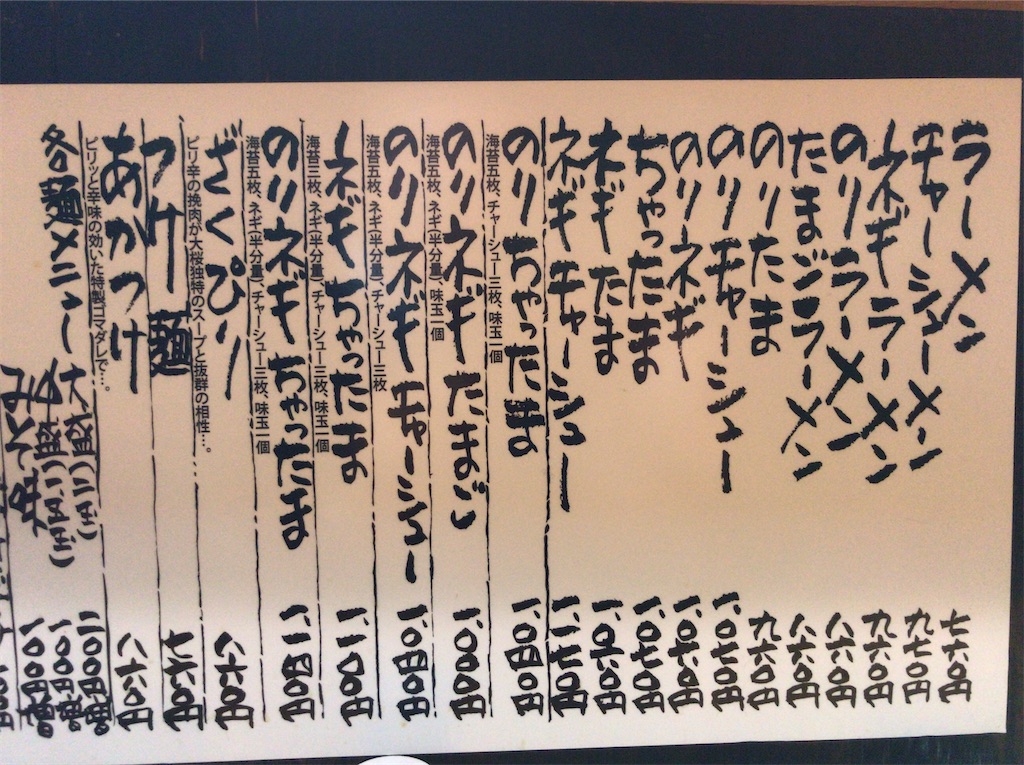 ラーメン 七六0円
チャーシューメン 九七0円
ネギラーメン 九六0円
のりラーメン 八六0円
たまごラーメン 八六0円
のりたま 九六0円
のりチャーシュー 一、0七0円
のりネギ 一、0六0円
ちゃったま 一、0七0円
ネギたま 一、0六0円
ネギチャーシュー 一、一七0円
のりちゃったま 一、0四0円
海苔五枚、チャーシュー三枚、味玉一個
のりネギたまご 一、000円
海苔五枚、ネギ(半分量)、味玉一個
のりネギチャーシュー 一、0四0円
海苔五枚、ネギ(半分量)、チャーシュー三枚
ネギちゃったま 一、一00円
海苔三枚、ネギ(半分量)、チャーシュー三枚、味玉一個
のりネギちゃったま 一、一四0円
海苔五枚、ネギ(半分量)、チャーシュー三枚、味玉一個
ざくぴり 八六0円
ピリ辛の挽肉が大桜独特のスープと抜群の相性…。
つけ麺 七六0円
あかつけ 八六0円
ピリッと辛味の効いた特製ゴマダレで…。
各麺メニュー 大盛